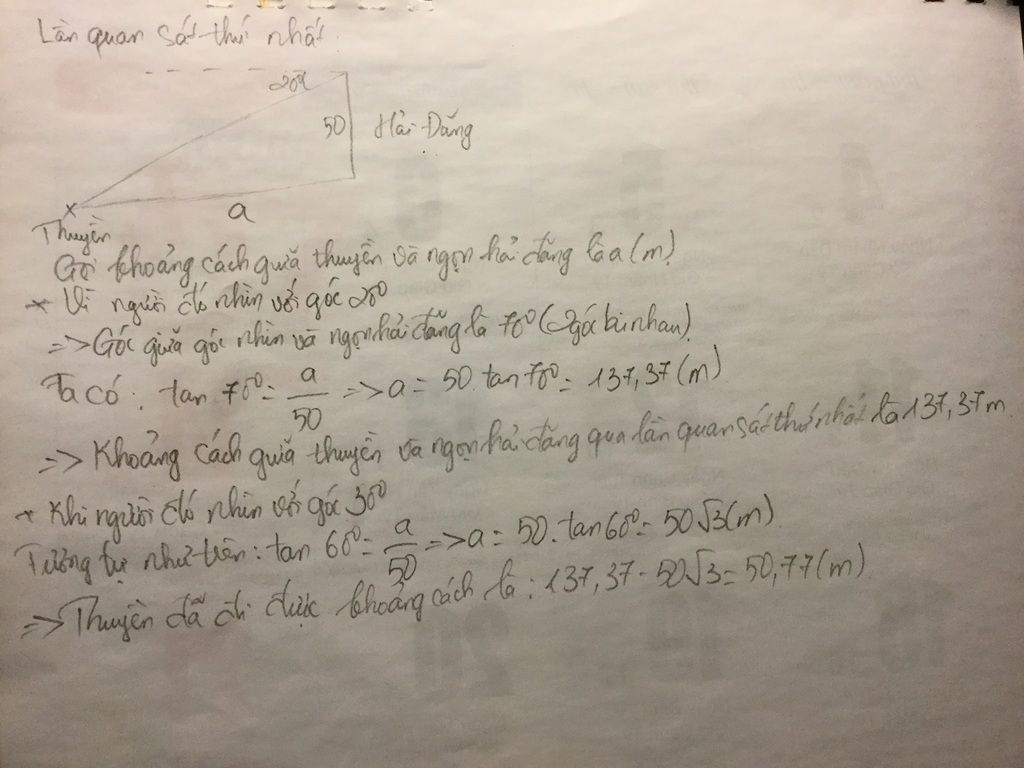 Lần quan sát thứ nhất.
20°
50 Hải Đăng
a
Thuyền
Gọi khoảng cách giữa thuyền và ngọn hải đăng là a (m)
* Vì người đó nhìn với góc 20°
=> Góc giữa góc nhìn và ngọn hải đăng là 70° (2 góc bù nhau).
Ta có: tan 70° = a/50 => a = 50. tan 70° = 137,37 (m)
=> Khoảng cách giữa thuyền và ngọn hải đăng qua lần quan sát thứ nhất là 137,37 m.
* Khi người đó nhìn với góc 30°
Tương tự như trên: tan 60° = a/50 => a = 50. tan 60° = 50√3 (m).
=> Thuyền đã đi được khoảng cách là: 137,37 - 50√3 = 50,77 (m).